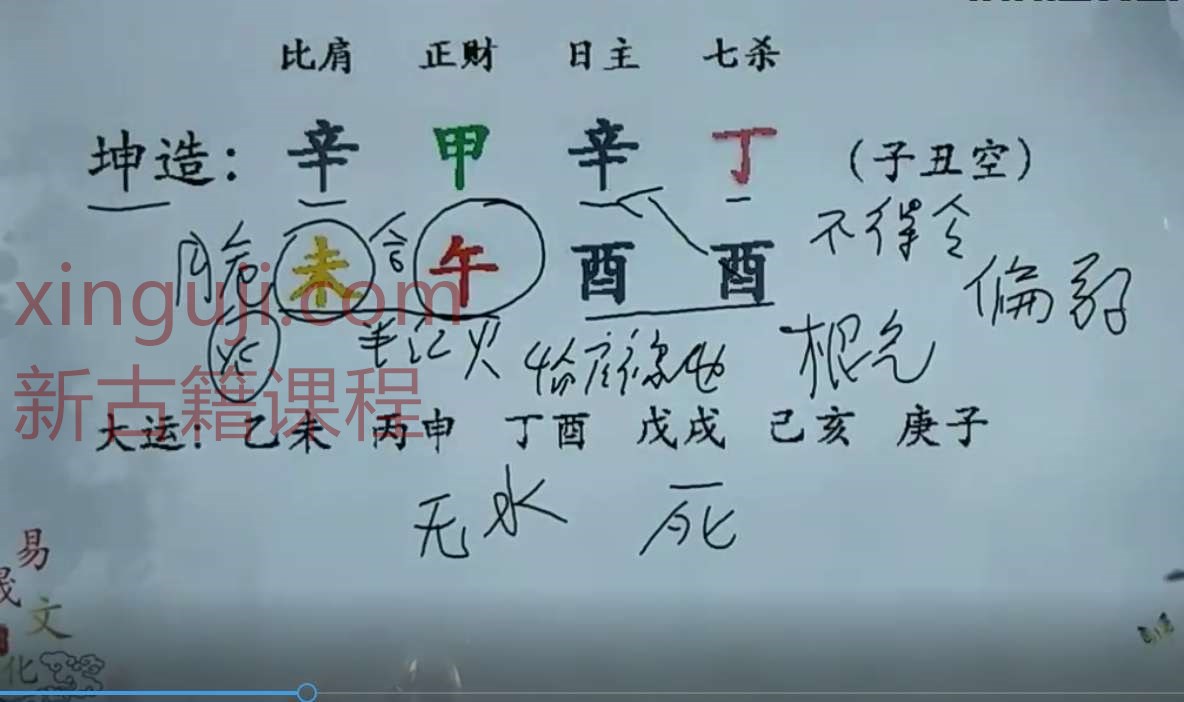 比肩 正财 日主 七杀
坤造： 辛 甲 辛 丁 （子丑空）
未 合 午 酉 酉 不得令
偏弱
火 半 火 根气
大运： 乙未 丙申 丁酉 戊戌 己亥 庚子
无水 死
xinguji.com
新古籍课程
易
文
化